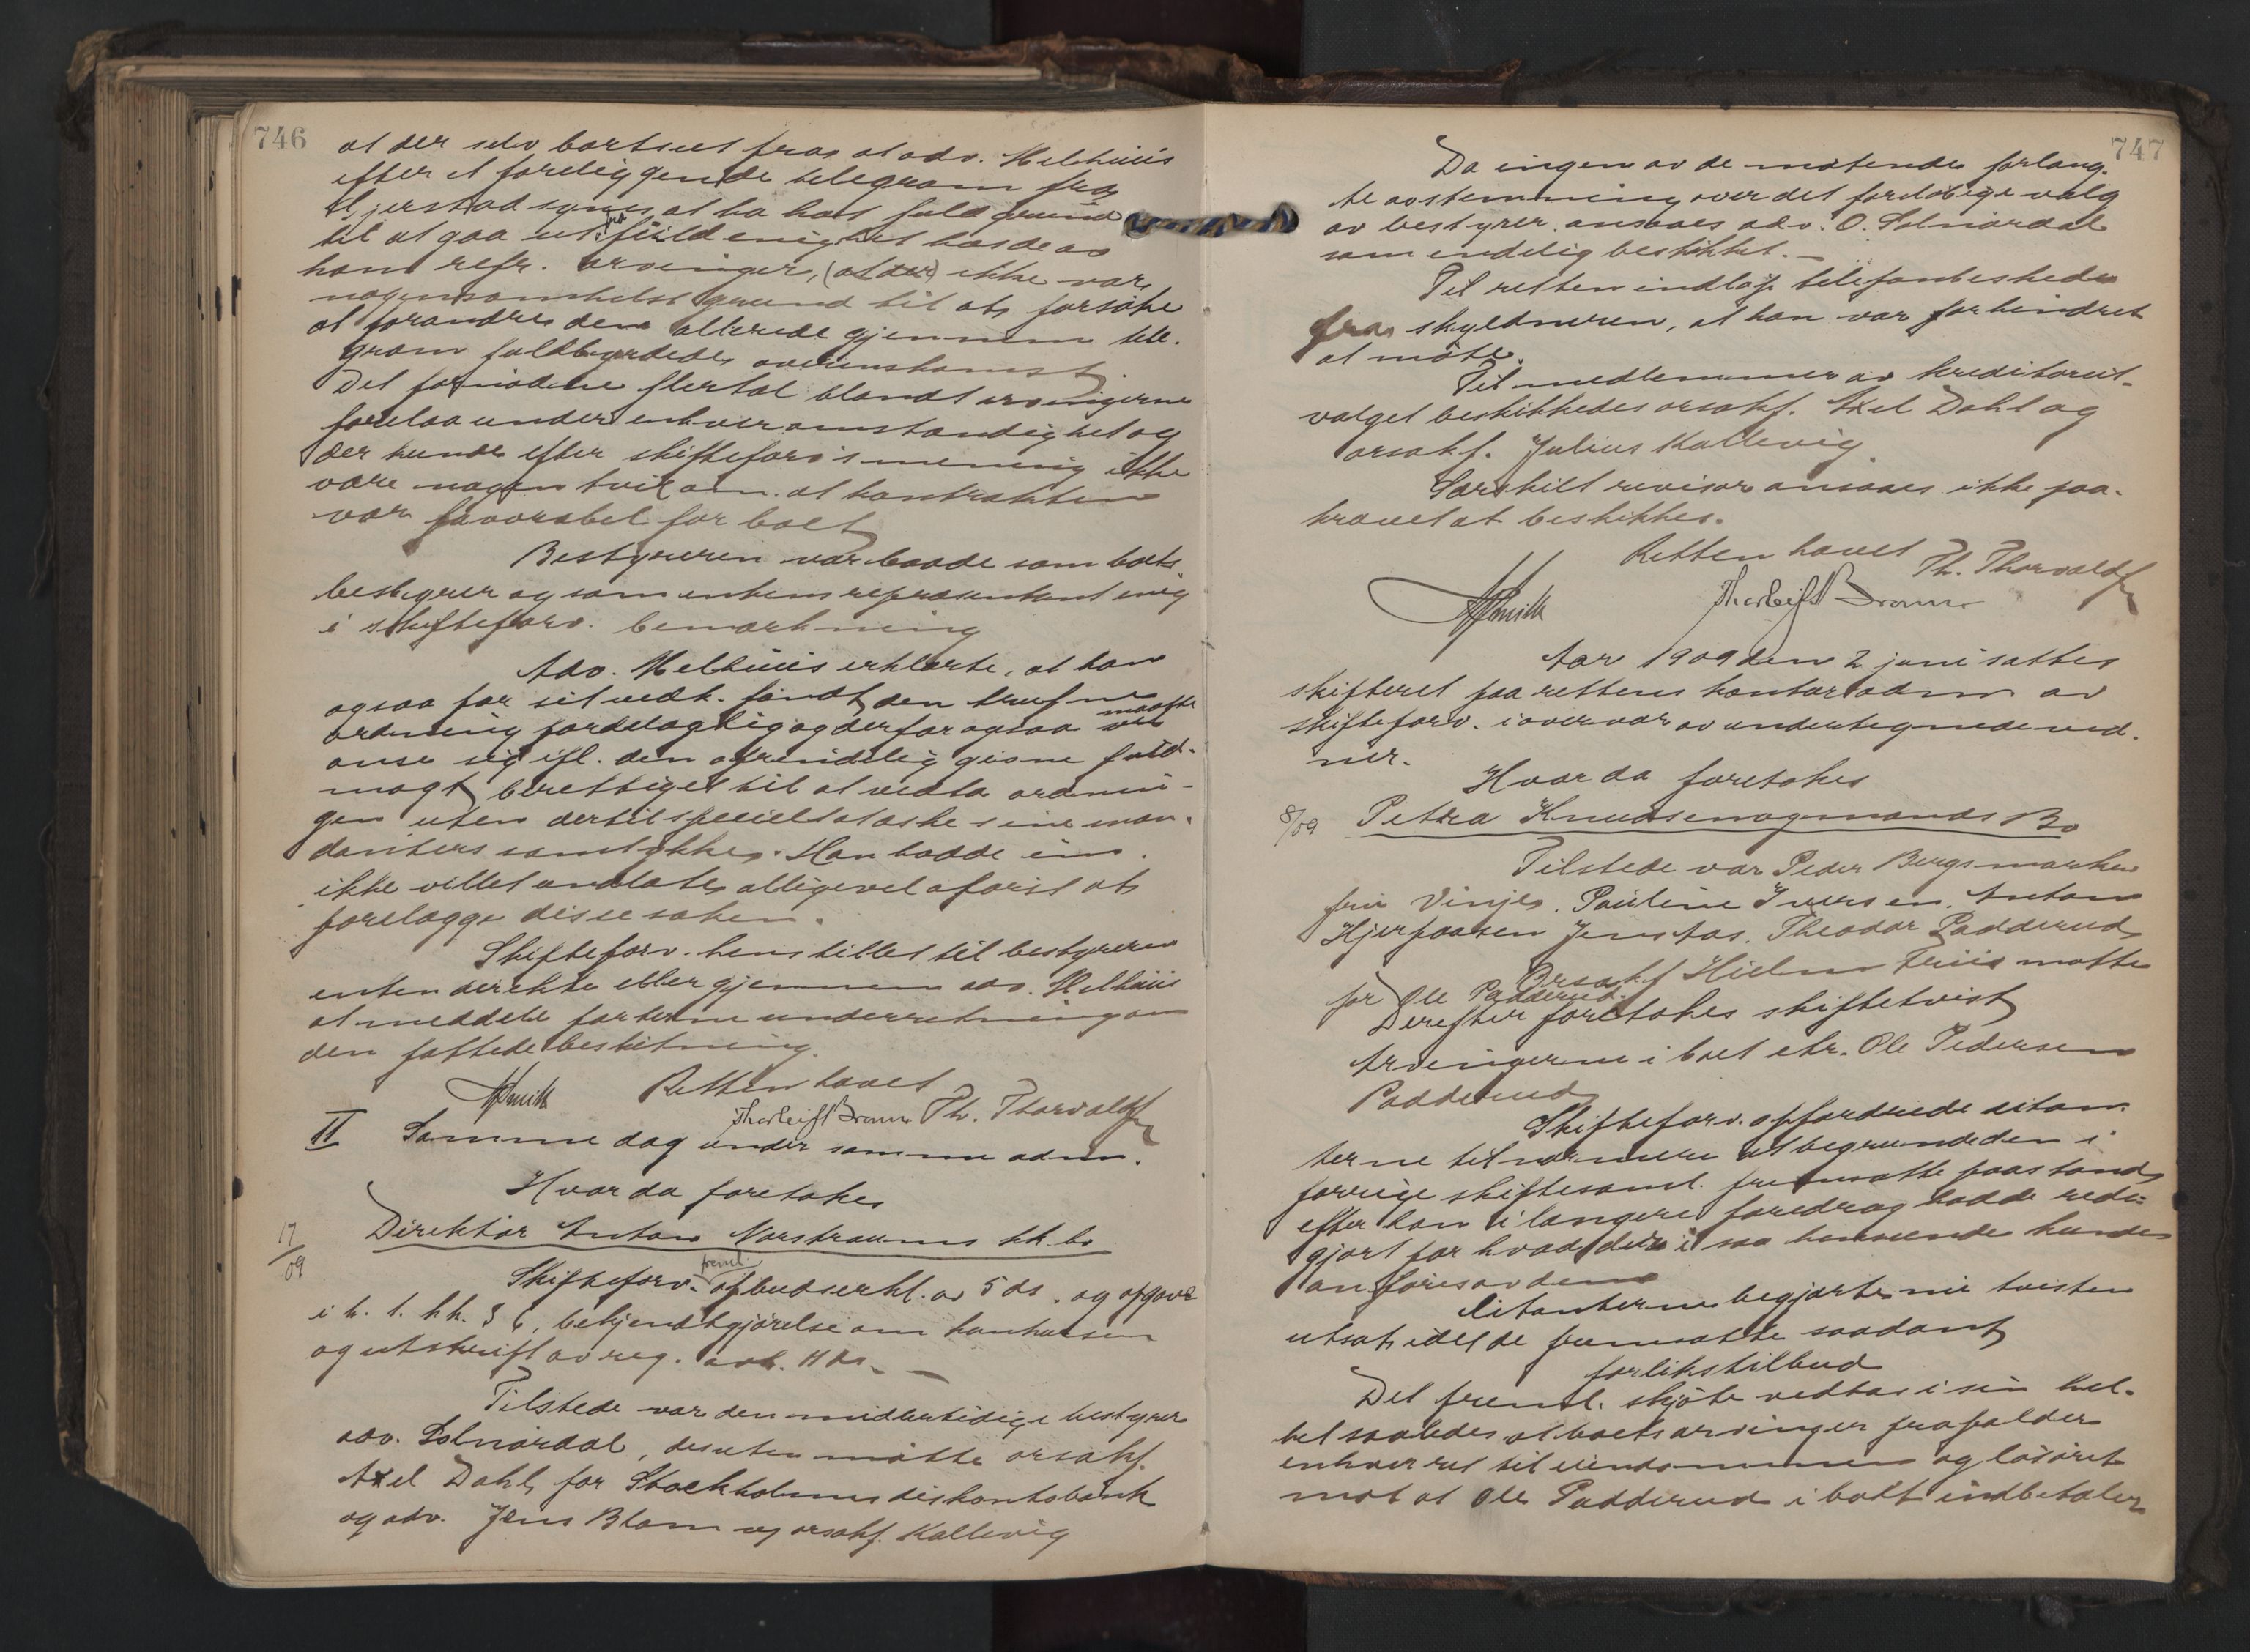 746
at der selv bortseet fra at adv. Melhuus
efter et foreliggende telegram fra
Gjerstad synes at ha hat fuld grund
til at gaa ut fra fuldenighet hos de av
ham repr. arvinger, (at der) ikke var
nogensomhelst grund til at forsøke
at forandre den allerede gjennem tele-
gram fuldbyrdede overenskomst.
Det fornødne flertal blandt arvingerne
forelaa under enhver omstændighet og
der kunde efter skifteforv's mening ikke
være nogen tvil om at kontrakten
var favorabel for boet
Bestyreren var baade som boets
bestyrer og som enkens repræsentant enig
i skifteforv. bemærkning
Adv. Melhuus erklærte, at han
ogsaa for sit vedk. fandt den trufne
ordning fordelagtig og derfor ogsaa maatte
anse sig ifl. den oprindelig givne fuld-
magt berettiget til at vedta ordnin-
gen uten dertil specielt at æske sine man-
danters samtykke. Han hadde im.
ikke villet undlate alligevel aforist at
forelægge disse saken.
Skifteforv. henstillet til bestyreren
enten direkte eller gjennem adv. Melhuus
at meddele parterne underretning om
den fattede beslutning.
Retten hævet
Thorleif Bronn Th. Thorvaldsen
II Samme dag under samme adm.
Hvor da foretokes
17/09 Direktør Anton Narstraums kk. bo
Skifteforv. freml. opbudserkl. av 5 ds. og opgave
i h. t. kk. § 6, bekjendtgjørelse om konkursen
og utskrift av reg. avh. 11 ds. —
Tilstede var den midlertidige bestyrer
adv. Solnørdal, desuten møtte orsakf.
Axel Dahl for Stockholms diskontobank
og adv. Jens Blom og orsakf. Kallevig
747
Da ingen av de møtende forlang-
te avstemning over det foreløbige valg
av bestyrer ansaaes adv. O. Solnørdal
som endelig beskikket. —
Til retten indløp telefonbeskede
fra skyldneren, at han var forhindret
at møte.
Til medlemmer av kreditorut-
valget beskikkedes orsakf. Axel Dahl og
orsakf. Julius Kallevig.
Særskilt revisor ansaaes ikke paa-
krævet at beskikkes.
Retten hævet
Thorleif Bronn Th. Thorvaldsen
Aar 1909 den 2 juni sattes
skifteret paa rettens kontor adm av
skifteforv. i overvær av undertegnede vid-
ner.
Hvor da foretokes
8/09 Petra Knudsen og mands Bo
Tilstede var Peder Bergsmarken
fru Vinje. Pauline Iversen. Anton
Hjerpaasen Theodor Padderud
Orsakf Hielm Friis møtte
for Ole Padderud.
Derefter foretokes skiftetvist
Arvingerne i boet ctr. Ole Pedersen
Padderud
Skifteforv. opfordrede citan-
terne til nærmere at begrunde den i
forrige skiftesaml. fremsatte paastand
efter han i længere foredrag hadde rede-
gjort for hvad der i saa henseende kunde
anføres av dem
Citanterne begjærte nu tvisten
utsat idet de fremsatte saadant
forlikstilbud
Det freml. skjøte vedtas i sin hel-
het saaledes at boets arvinger frafalder
enhver ret til eiendommen og løsøret
mot at Ole Padderud i boet indbetaler